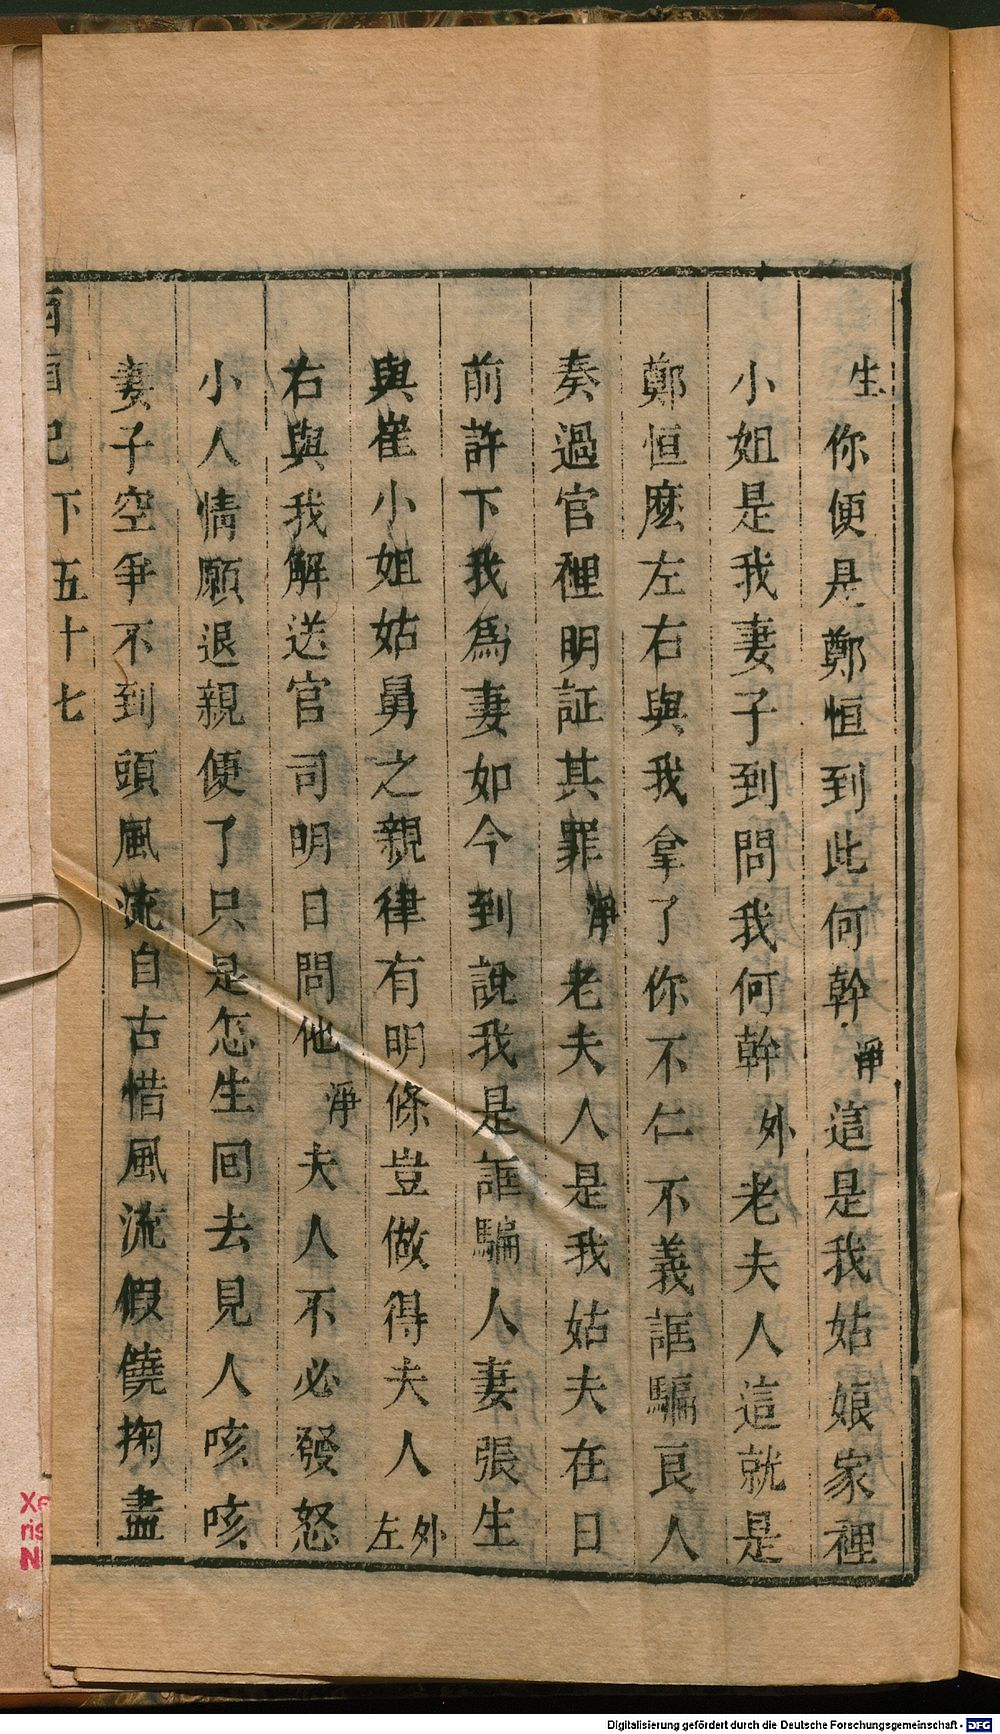 生你便是鄭恒到此何幹淨這是我姑娘家裡
小姐是我妻子到問我何幹外老夫人這就是
鄭恒麽左右與我拿了你不仁不義誆騙良人
奏過官裡明証其罪淨老夫人是我姑夫在日
前許下我爲妻如今到說我是誆騙人妻張生
與崔小姐姑舅之親律有明條豈做得夫人外左
右與我解送官司明日問他淨夫人不必發怒
小人情願退親便了只是怎生回去見人咳咳
妻子空爭不到頭風流自古惜風流假饒掬盡
西廂記 下五十七
Digitalisierung gefördert durch die Deutsche Forschungsgemeinschaft - DFG